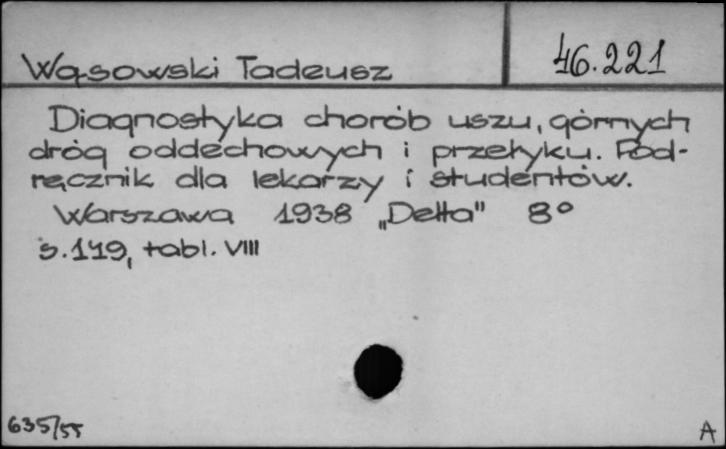 Wąsowski Tadeusz
46.221
Diagnostyka chorób uszu, górnych
dróg oddechowych i przełyku. Pod-
ręcznik dla lekarzy i studentów.
Warszawa 1938 „Delta" 8°
s. 149, tabl. VIII
635/55
A